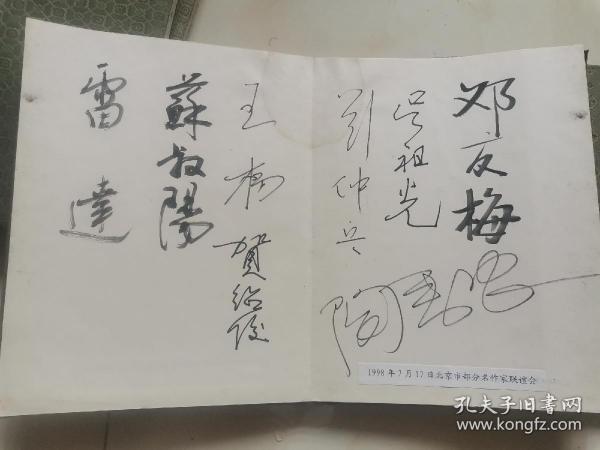 邓友梅
吴祖光
賀绍俊
蘇叔陽
雷達
1998年7月17日北京市部分名作家联谊会
孔夫子旧书网
www.kongfz.com